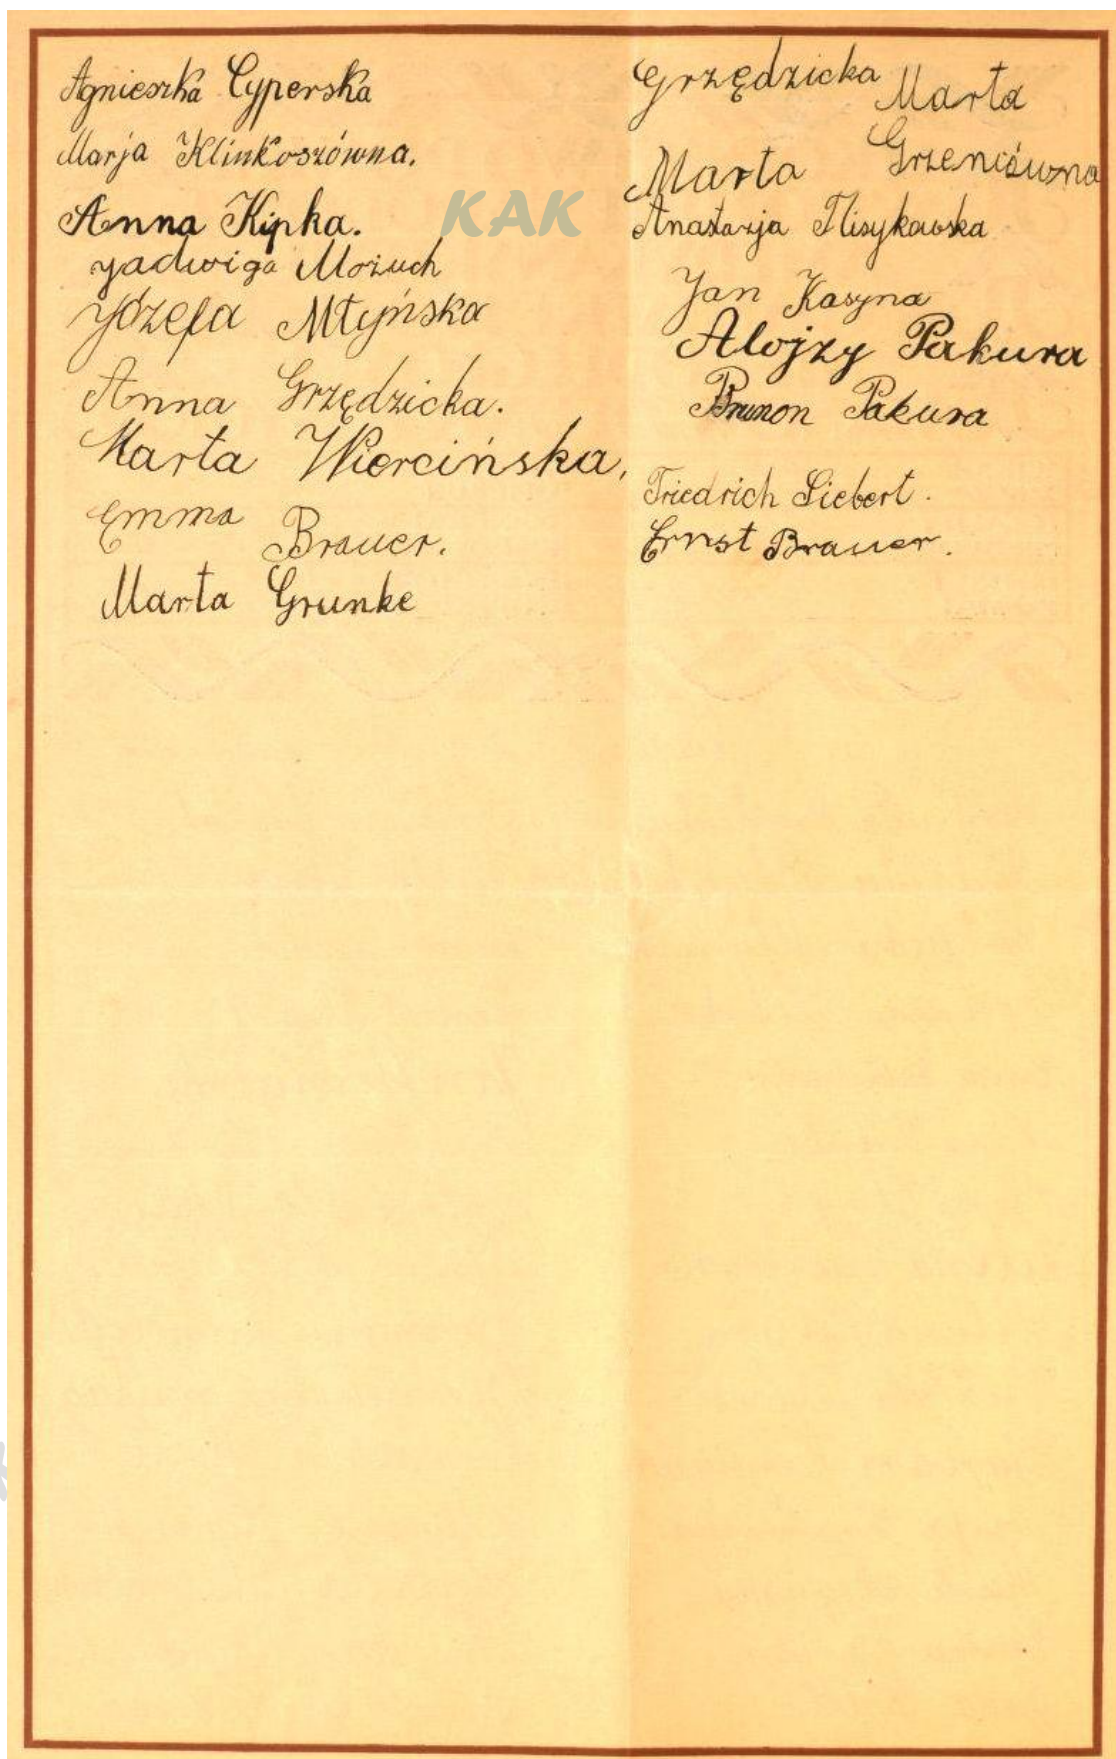 Agnieszka Cyperska
Marja Klinkoszówna.
Anna Kipka.
Jadwiga Możuch
Józefa Młyńska
Anna Grzędzicka.
Marta Wiercińska,
Emma Brauer.
Marta Grunke
KAK
Grzędzicka Marta
Marta Grzeniówna
Anastazja Flisykowska
Jan Kasyna
Alojzy Pakura
Brunon Pakura
Friedrich Siebert.
Ernst Brauer.